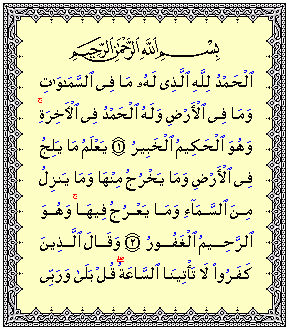 بِسْمِ ٱللَّهِ ٱلرَّحْمَٰنِ ٱلرَّحِيمِ
ٱلْحَمْدُ لِلَّهِ ٱلَّذِى لَهُۥ مَا فِى ٱلسَّمَٰوَٰتِ
وَمَا فِى ٱلْأَرْضِ وَلَهُ ٱلْحَمْدُ فِى ٱلْأَخِرَةِ ۚ
وَهُوَ ٱلْحَكِيمُ ٱلْخَبِيرُ ﴿١﴾ يَعْلَمُ مَا يَلِجُ
فِى ٱلْأَرْضِ وَمَا يَخْرُجُ مِنْهَا وَمَا يَنزِلُ
مِنَ ٱلسَّمَآءِ وَمَا يَعْرُجُ فِيهَا ۚ وَهُوَ
ٱلرَّحِيمُ ٱلْغَفُورُ ﴿٢﴾ وَقَالَ ٱلَّذِينَ
كَفَرُوا۟ لَا تَأْتِينَا ٱلسَّاعَةُ ۖ قُلْ بَلَىٰ وَرَبِّى